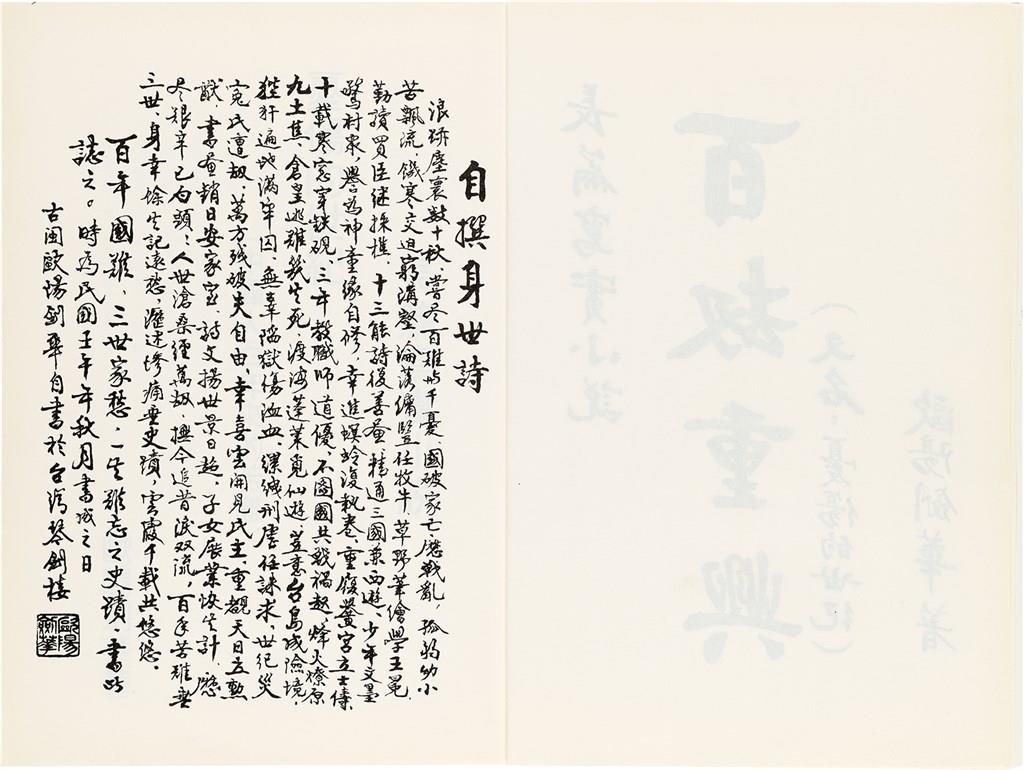 自撰身世詩
浪跡塵寰數十秋、嘗尽百難与千憂、國破家亡歷戰亂,孤弱幼小
苦飄流、饑寒交迫窮溝壑、淪落傭豎任牧牛、草野筆繪學王冕、
勤讀買臣继採樵、十三能詩後善畫、精通三國兼西遊、少年文墨
驚村眾,譽為神童緣自修,幸進螟蛉復執卷、重履黌宮立士儔、
十載寒窓穿鉄硯、三年教職師道優、不圖國共戰禍起、烽火燎原
九土焦、倉皇逃難幾生死、渡海蓬萊覓仙遊、豈意台島成險境、
狴犴遍地滿牢囚、無辜陷獄傷泣血、縲絏刑虐任誅求、世紀災
冤民遭劫、萬方殘破失自由、幸喜雲開見民主、重覩天日立勲
猷、書画銷日安家室、詩文揚世景日趨、子女展業恢生計、歷
尽艱辛已白頭;人世滄桑經萬劫、撫今追昔淚双流,百年苦難垂
三世、身幸餘生記遠愁,瀝述慘痛垂史蹟,雲霞千載共悠悠。
百年國難、三世家愁、一生難忘之史蹟、書此
誌之。時為民國壬午年秋月書成之日
古閩歐陽劍華自書於台灣琴劍樓
歐陽劍華
長篇寫實小說
百劫重興
(又名:憂傷的世紀)
歐陽劍華著